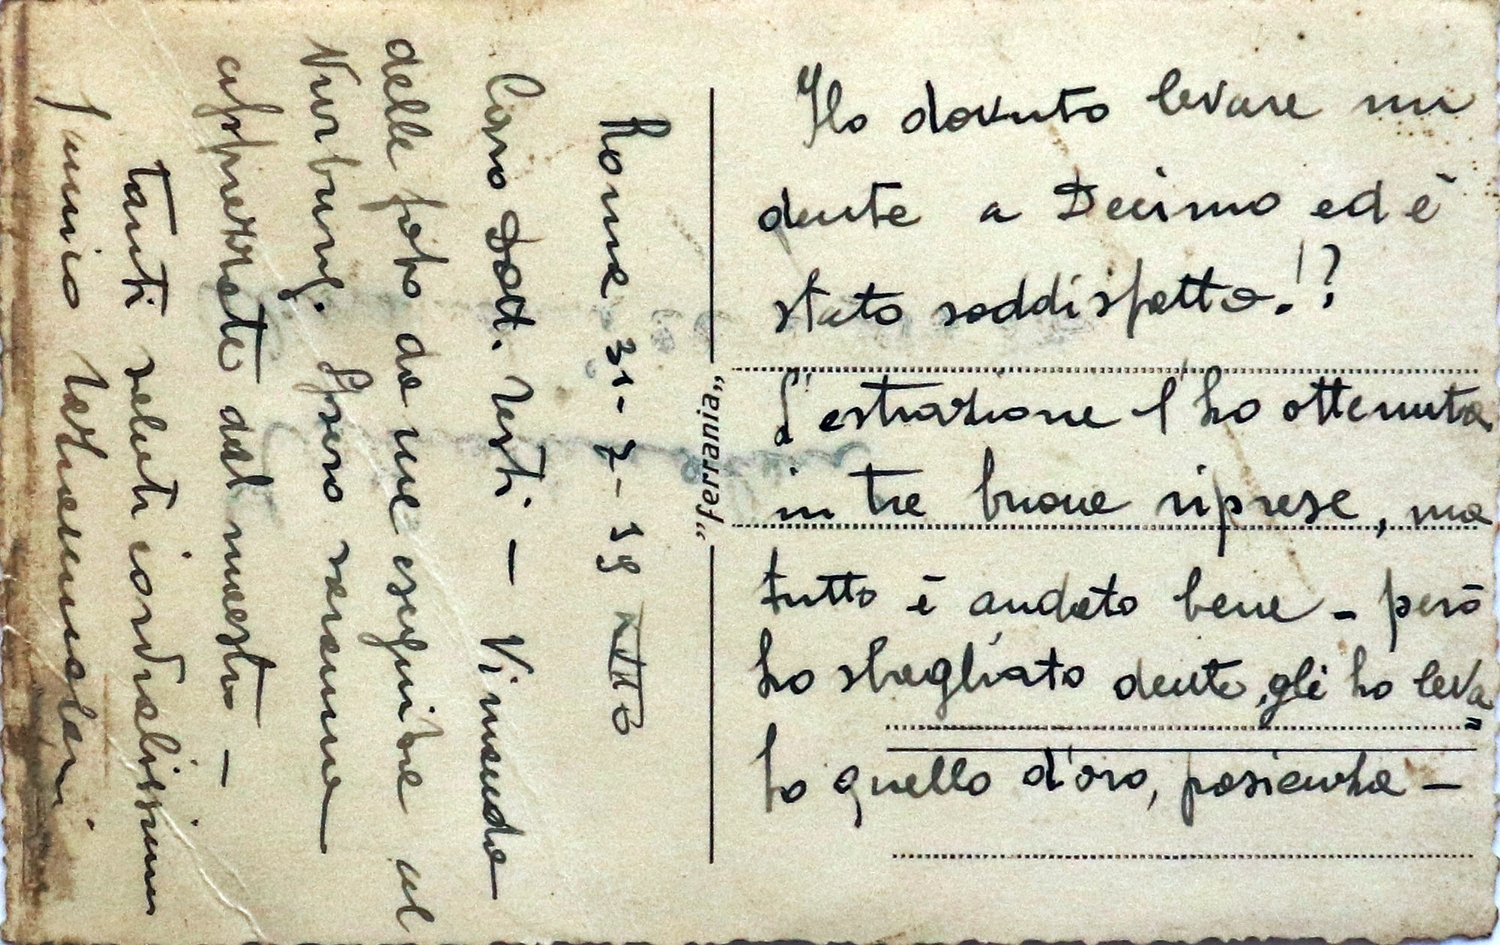 Roma 31-7-39 XVII
Caro Dott. Testi. — Vi mando
delle foto da me eseguite al
Nurburg. Spero saranno
apprezzate dal maestro —
tanti saluti cordialissimi
„ferrania„
Ho dovuto levare un
dente a Decimo ed è
stato soddisfatto!?
L'estrazione l'ho ottenuta
in tre buone riprese, ma
tutto è andato bene - però
ho sbagliato dente, gli ho leva=
to quello d'oro, pasienha —